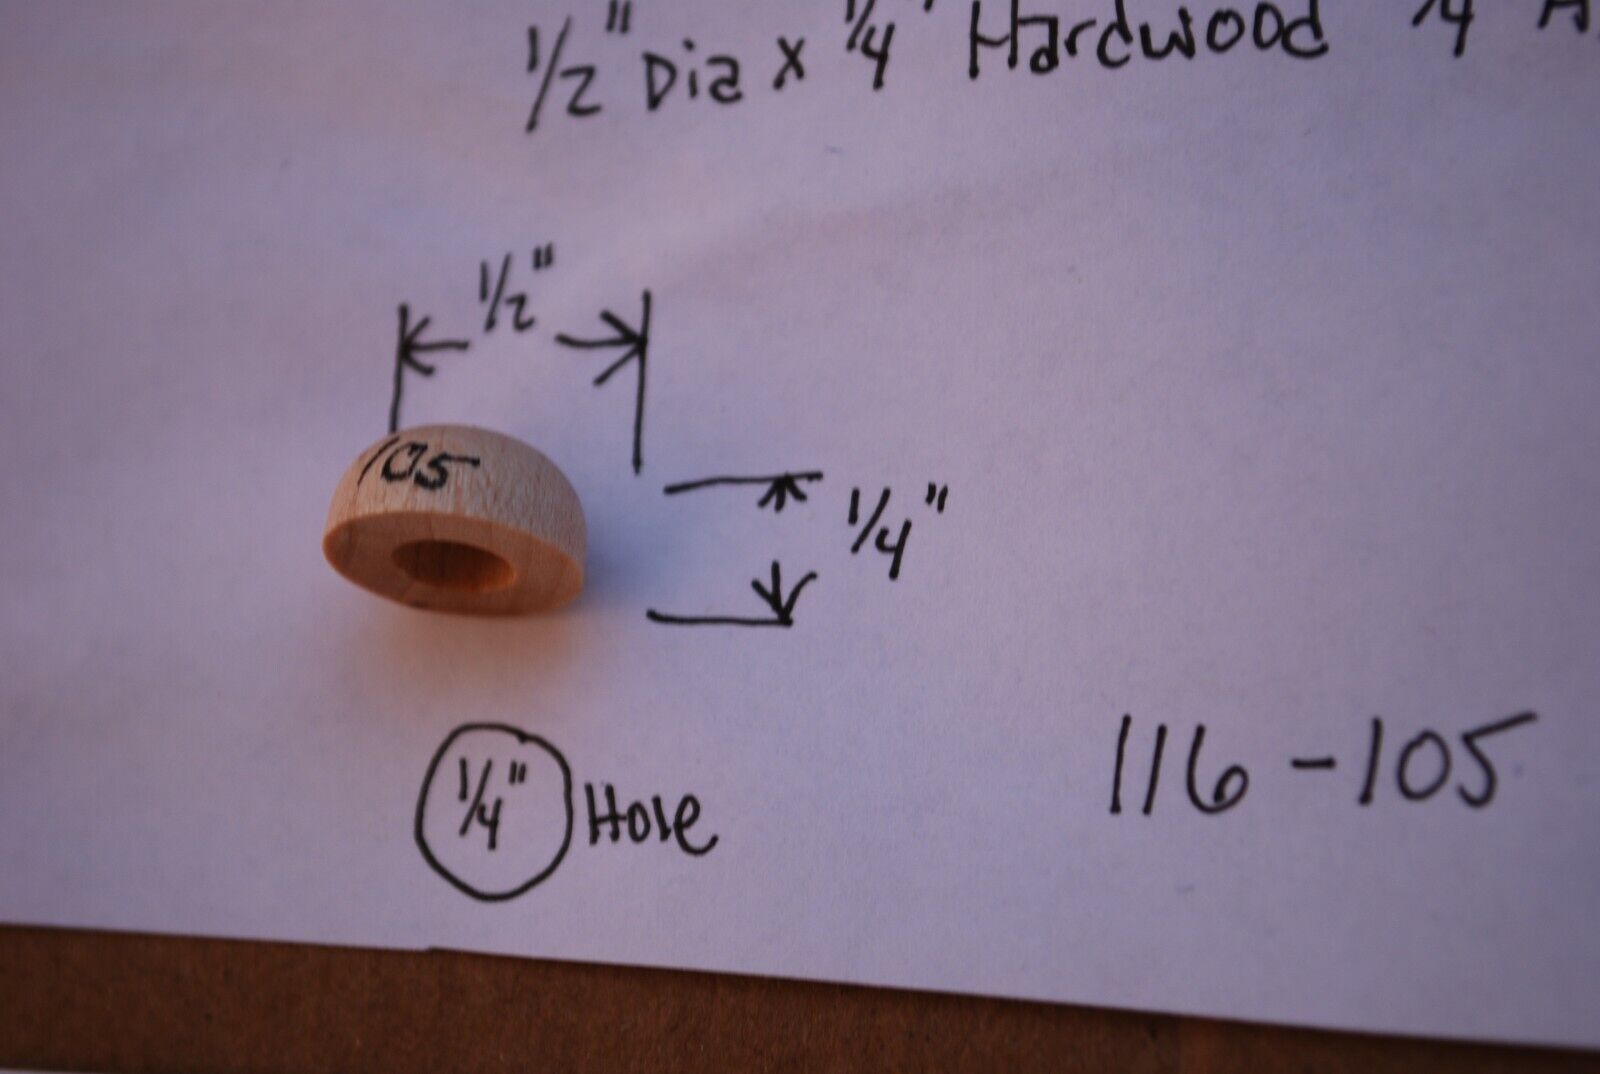 1/2" Dia x 1/4" Hardwood
1/2"
105
1/4"
1/4" Hole
116-105